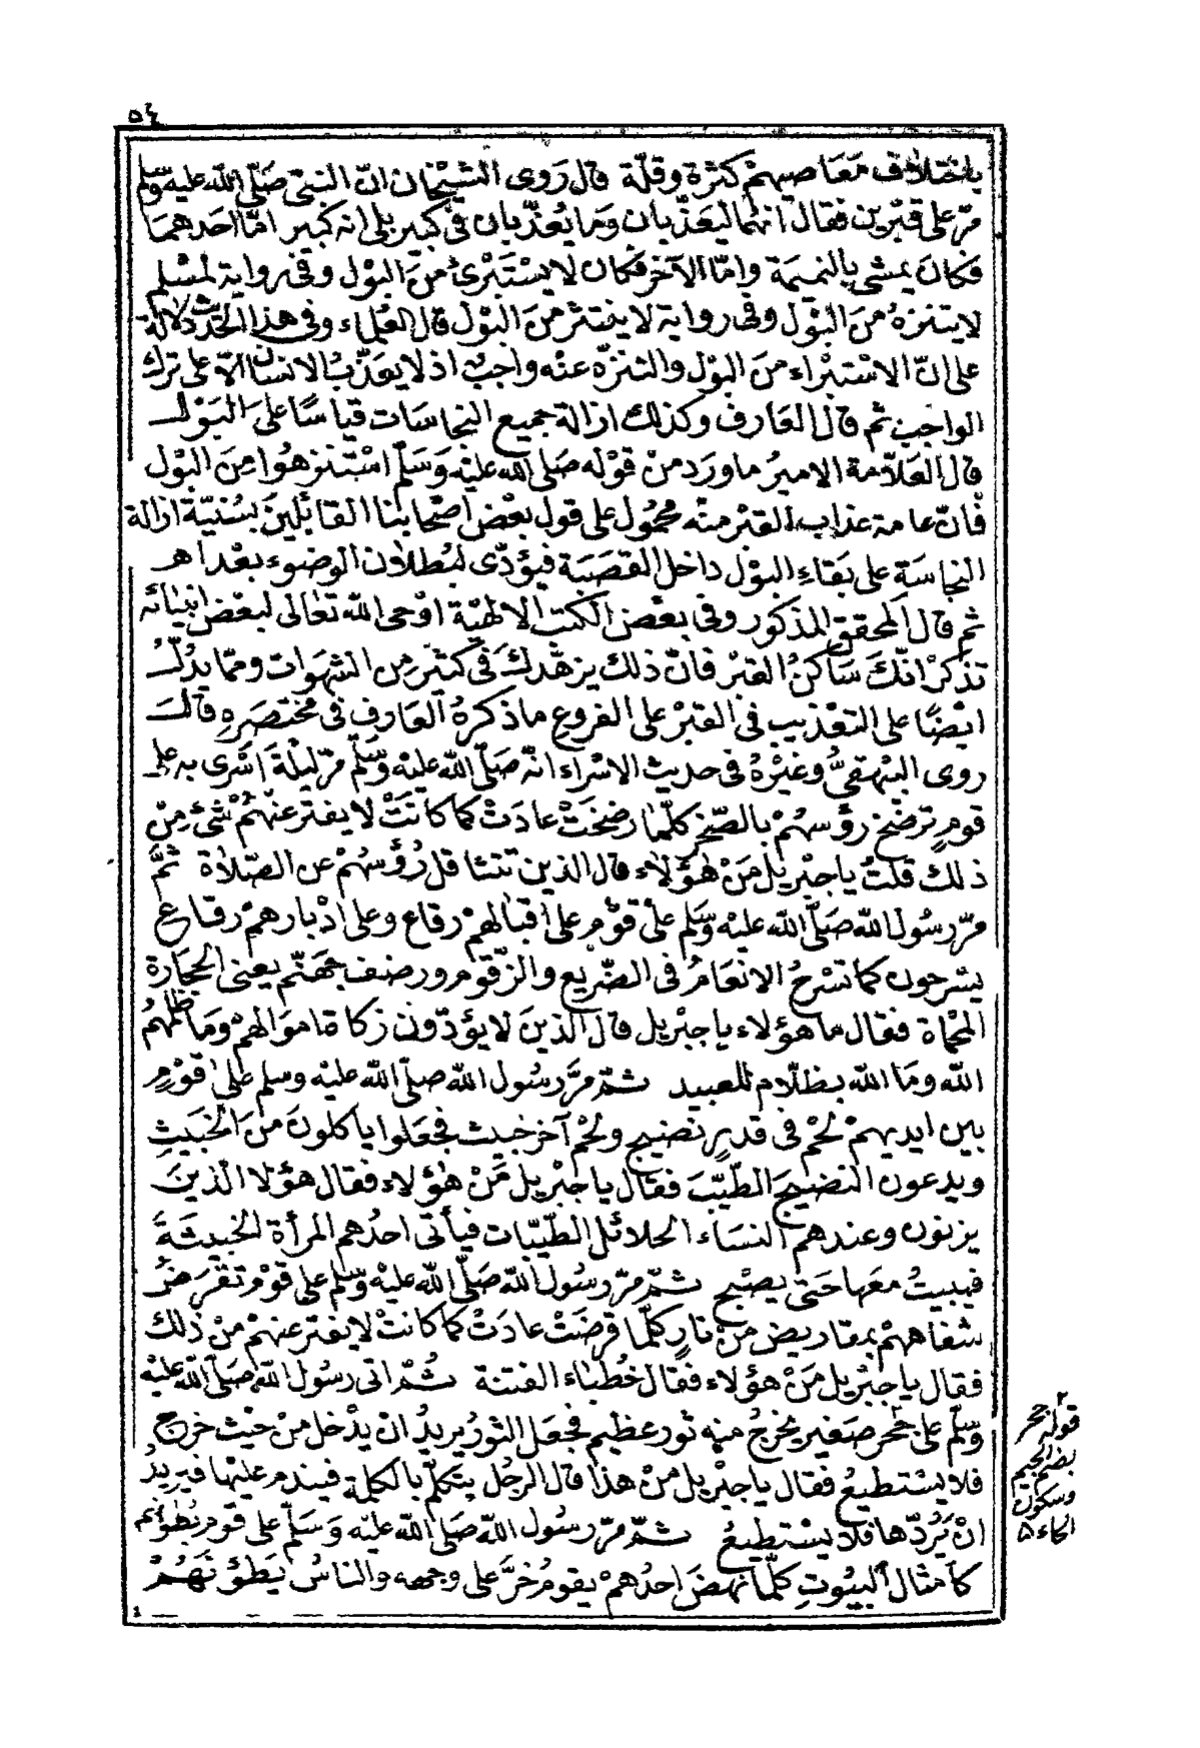 ٥٤
باختلاف مَعَاصيهمْ كثرة وقلّة قال رَوى الشيْخان انّ النبيّ صَلّى الله عليه وسلم
مرّ على قبْرين فقال انهُما ليعَذّبان وَمَا يُعَذّبان فى كبير بلى انه كبير امّا احَدهمَا
فكانَ يمشى بالنميمَة وامّا الآخر فكان لا يسْتَبْرئ منَ البوْل وفى رواية لمسْلم
لا يتنزهُ منَ البَوْل وفى رواية لا يستترْ منَ البوْل قال العُلماء وفى هذا الحَديث دلالة
على انّ الاسْتبْراء منَ البوْل والتنزّه عنْه واجبٌ اذ لا يعَذّبُ الانسَان الّا على ترك
الواجب ثم قال العَارف وكذلك ازالة جميع النجاسَات قياسًا علىَ البَوْل
قال العَلاّمة الاميرُ ما ورَد منْ قوْله صَلى الله عليْه وَسَلّم اسْتنزهُوا مِنَ البوْل
فانّ عامة عذاب القبْر منْه محْمُول على قول بعْض اصْحَابنا القائلينَ بسُنيّة ازالة
النجاسَةِ على بَقاءِ البوْل داخل القصَبَة فيؤدّى لبُطلان الوضوء بعْد اهـ
ثم قال المحقق المذكور وفى بعْض الكتب الالهيّة اوْحى الله تعَالى لبعْض انبيَائه
تذكرْ انّكَ سَاكنُ القبْر فانّ ذلك يزهّدكَ فى كثير مِن الشهَوات وممّا يدُلّ
ايْضًا على التعْذيب فى القبْر على الفروع ما ذكرهُ العَارف فى مختصَرهِ قالَ
روى البيْهقىّ وغيْرهُ فى حديث الاسْراء انّه صَلّى الله عليْه وَسَلّم مرّ ليْلةَ اسْرى به على
قومٍ ترضخ رؤسهُمْ بالصّخر كلّما رضخَتْ عادَتْ كما كانَتْ لا يفتر عنهُمْ شئ مِنْ
ذلك قلتُ يا جبْريل مَنْ هٰؤلاء قال الذين تتثاقل رُؤسهُمْ عن الصّلاة ثمَّ
مرّ رسُولُ الله صَلّى الله عليْه وسَلم علىَ قوْمٍ على اقبَالهمْ رقاع وعلى ادْبارهمْ رقاع
يسْرحون كما تسْرحُ الانعَامُ فى الضّريع والزّقوم ورضف جهَنّم يعنى الحجارة
المحْماة فقال ما هؤلاء يا جبْريل قال الذينَ لا يؤدّون زكاة اموَالهمْ ومَا ظلمهُمُ
الله ومَا الله بظلّام للعبيد ثمّ مرَّ رسُول الله صلّى الله عليْه وسلم علىٰ قوْمٍ
بين ايديهمْ لحْم فى قدرٍ نضيج ولحْم آخر خبيث فجعَلوا يأكلونَ منَ الخبَيثِ
ويدعون النضيجَ الطّيّبَ فقال يا جبْريل مَنْ هٰؤلاء فقال هؤلا الّذينَ
يزنون وعندهم النسَاء الحلائل الطيّبات فيأتى احدُهم المرأة الخبيثةَ
فيبيتُ معَها حَتى يصبْح ثمّ مرّ رسُول الله صَلّى الله عليْه وسّلم على قوْم تقرَضُ
شفاههمْ بمقاريض منْ نارٍ كلّما قرضَتْ عادَتْ كما كانتْ لا يفتر عنهمْ منْ ذلك
فقال يا جبْريل مَنْ هؤلاء فقال خُطبَاء الفتنة ثُمّ اتى رسُول الله صَلّى الله عليْه
وسَلّم على جُحْر صَغير يخرجُ منه ثور عظيم فجعَل الثورُ يريدُ ان يدْخل منْ حيْث خرج
فلا يسْتطيعُ فقال يا جبْريل منْ هذا قال الرجُل يتكلّم بالكلمة فيندم عليْها فيريدُ
انْ يَرُدّها فلا يسْتطيعُ ثمّ مرّ رسُول الله صَلى الله عليْه وَسَلّم على قوم بُطونهم
كأمثال البيُوتِ كلّما نهضَ احدُهمْ يقومُ خرَّ على وجهه والناسُ يَطؤنَهُمْ
قوله جحر
بضم الجيم
وسكون
الحاء ٥